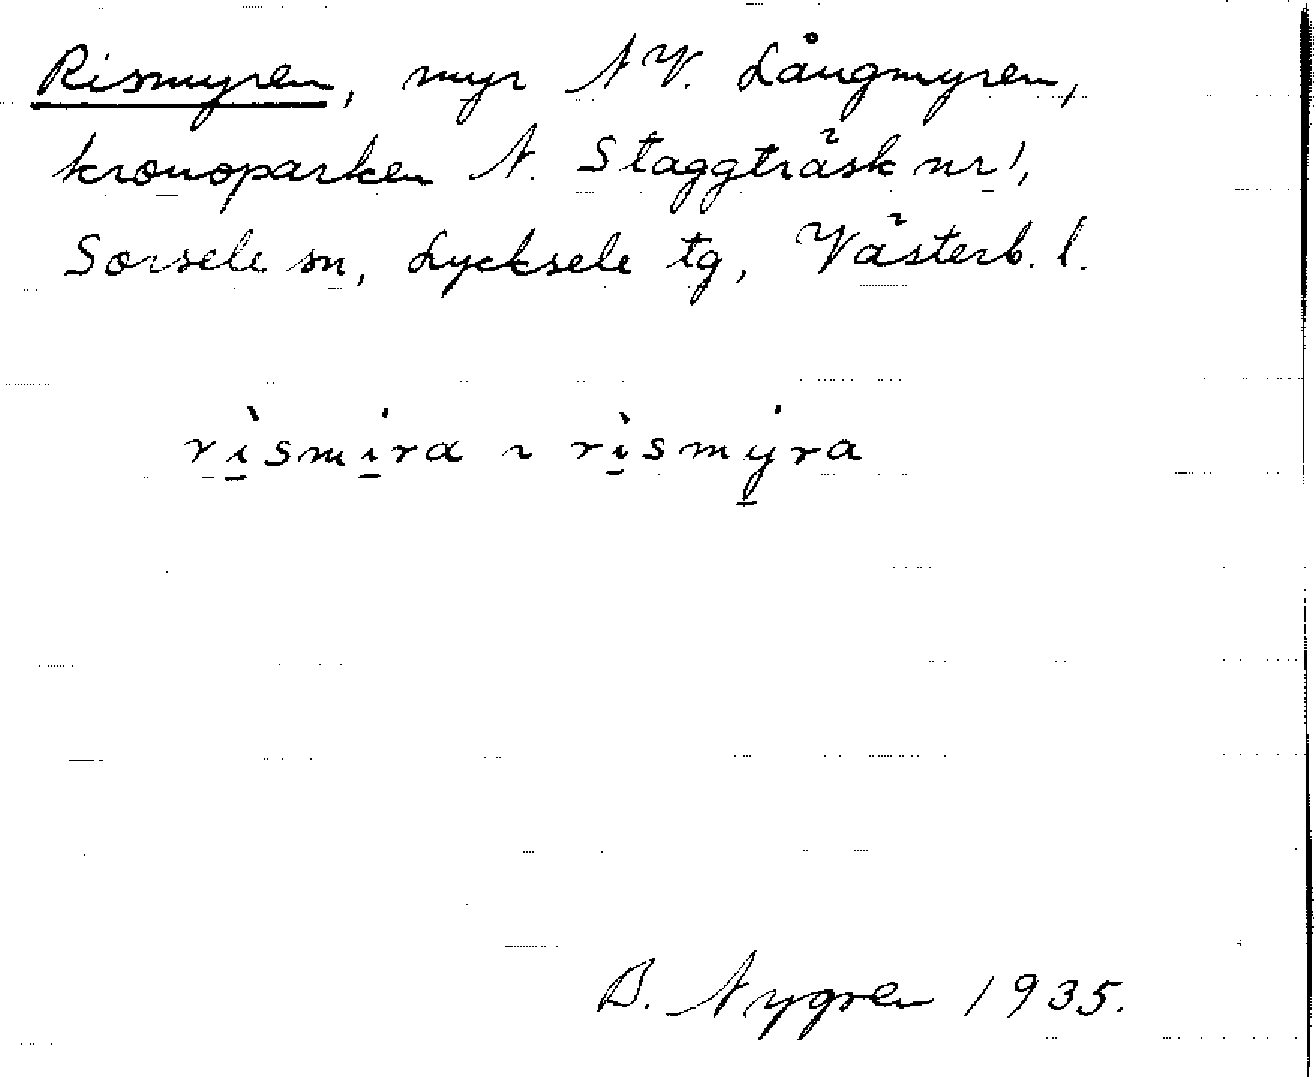 Rismyren, myr NV. Långmyren,
kronoparken N. Staggträsk nr 1,
Sorsele sn, Lycksele tg, Västerb. l.
rìsmíra ~ rìsmýra
B. Nygren 1935.